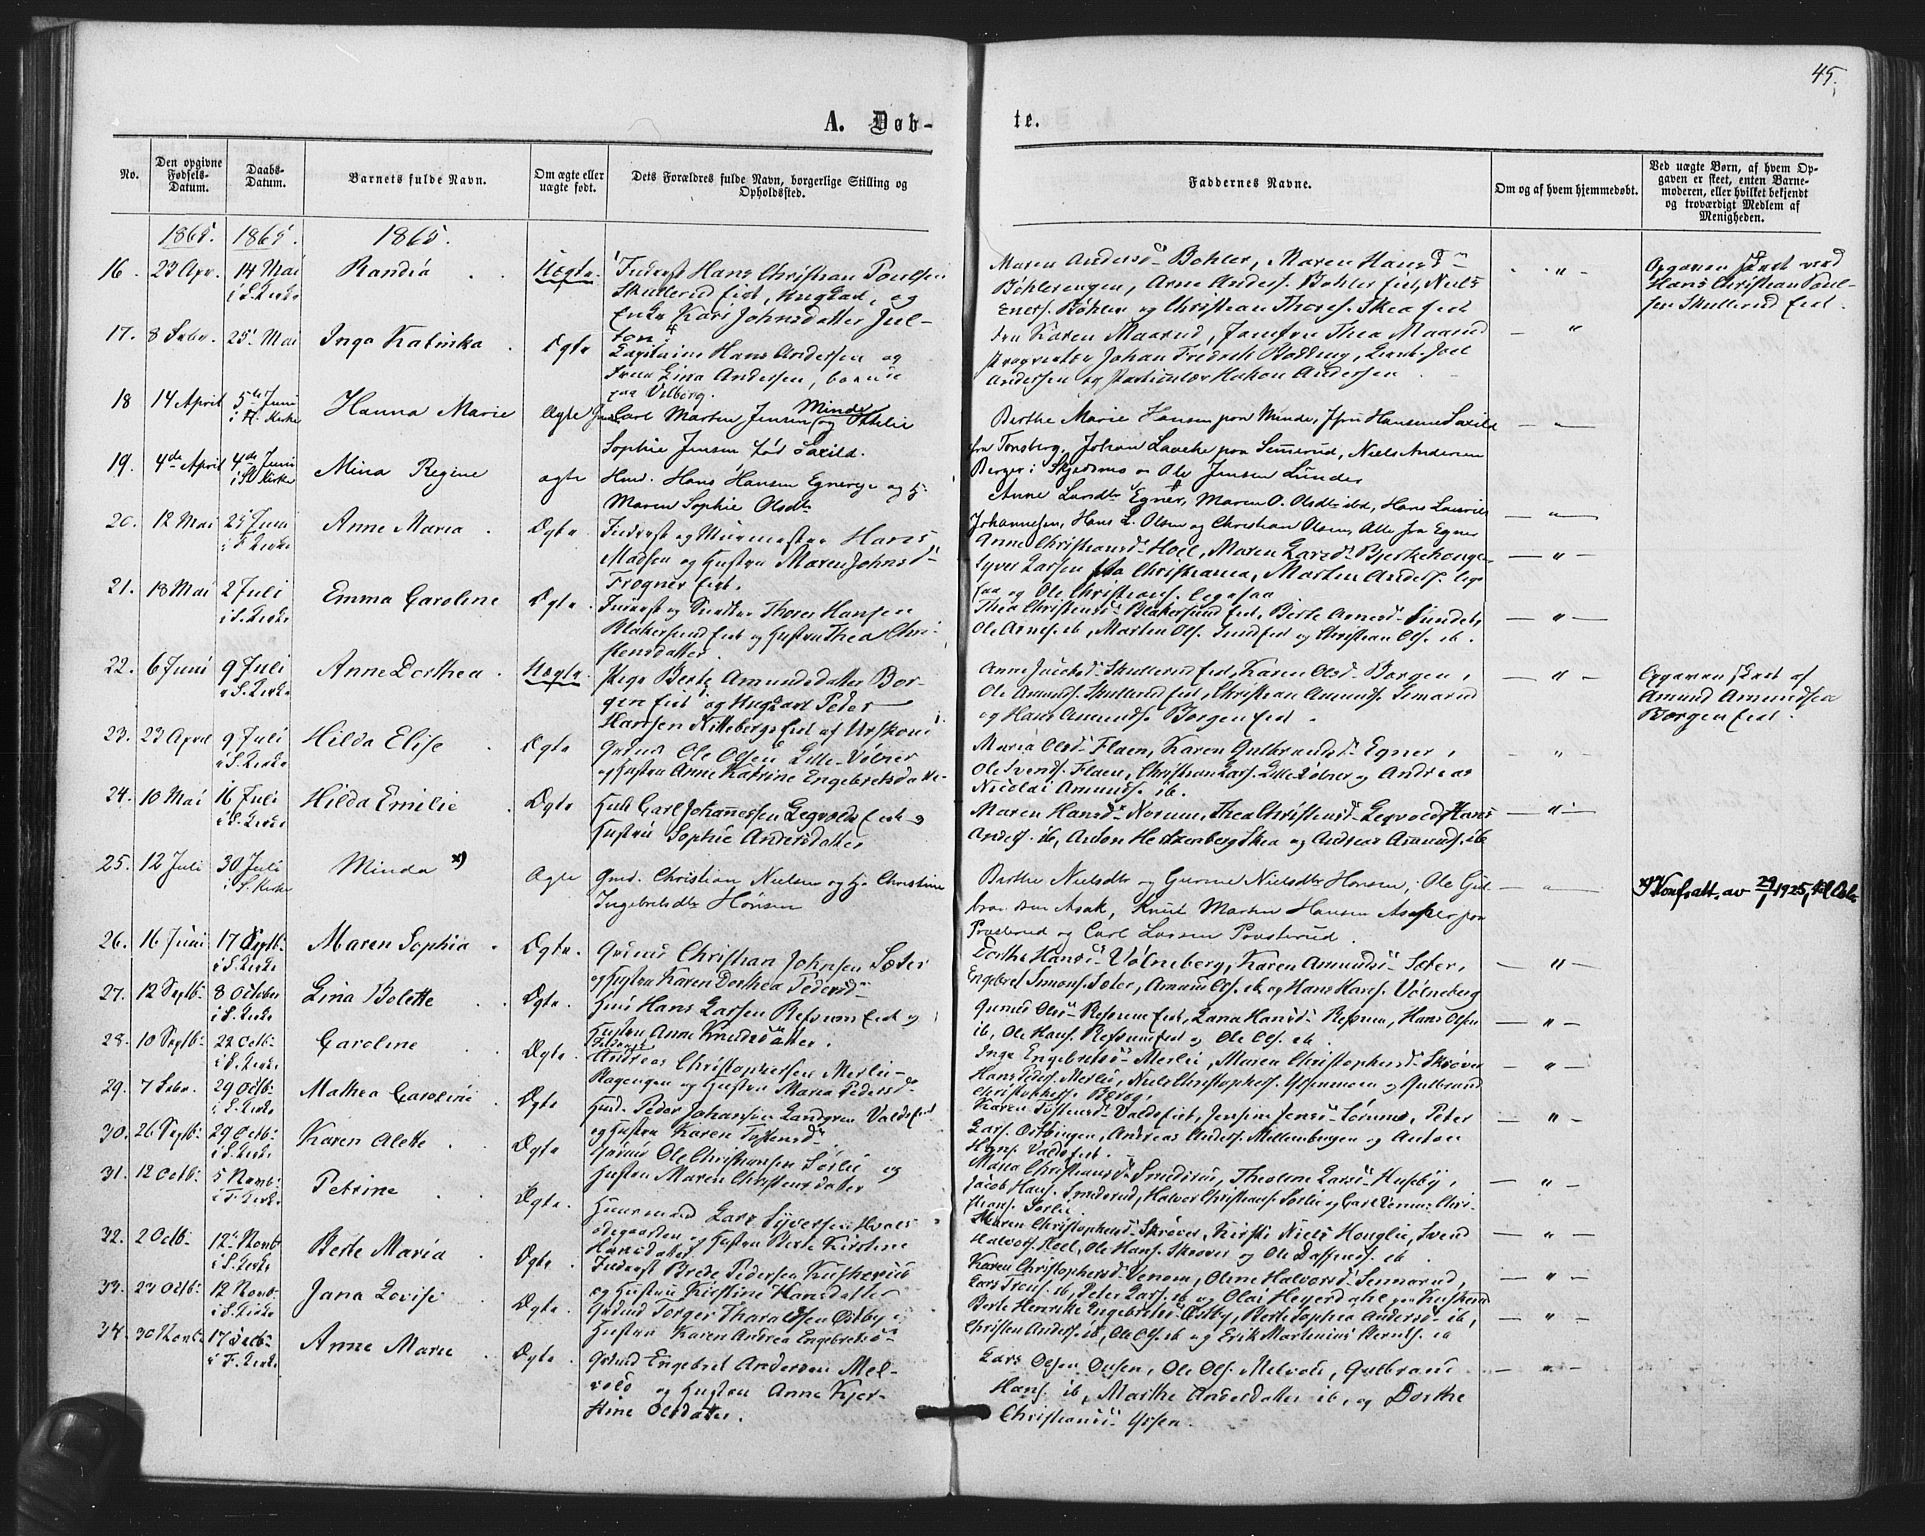 45.
A. Døb-
te.
No.
Den opgivne Fødsels-Datum.
Daabs-Datum.
Barnets fulde Navn.
Om ægte eller uægte født.
Dets Forældres fulde Navn, borgerlige Stilling og Opholdssted.
Faddernes Navne.
Om og af hvem hjemmedøbt.
Ved uægte Børn, af hvem Opgaven er skeet, enten Barnemoderen, eller hvilket bekjendt og troværdigt Medlem af Menigheden.
1865. 1865. 1865.
16. 23 Apr. 14 Mai Randia Uægte.
Hans Christian Poulsen
Skullerud Eiet, Ungkarl, og
Enke Kari Johnsdatter Jul-
ton
Maren Andersd Bohler, Maren Hansd
Bøhlerengen, Arne Anders. Bohler Eiet, Niels
Eners. Bøhler og Christian Thores. Skea Eiet
"
Opgaven skeet ved
Hans Christian Poul-
sen Skullerud Eiet.
17. 8 Febr. 25 Mai Inga Katinka Ægte
Capitaine Hans Andersen og
Frue Lina Andersen, boende
paa Vilberg.
Fru Karen Maarud, Jomfru Thea Maarud
Johan Fredrik Lieut. Joel
Andersen og Particulær Hakon Andersen
"
18 14 April 5te Juni i H. Kirke Hanna Marie Ægte
Carl Marten Jensen Minde og Ottilie
Sophie Jensen fød Saxild.
Berthe Marie Hansen paa Minde, Jfru Hansine Saxild
fra Tønsberg, Johan paa Semmerud, Niels Andersen
Berger i Skjedsmo og Ole Jensen Lunder
"
19. 4de April 4de Juni Mina Regine ægte
Hmd. Hans Hansen Egnereje og H.
Maren Sophie Olsdtr
Anne Larsdtr Egner, Maren O. Olsdtr ibd, Hans Laurits
Johannesen, Hans L. Olsen og Christian Olsen, Alle fra Egner
"
20. 12 Mai 25 Juni i F. Kirke Anne Maria Ægte
Inderst og Muurmester Hans
Madsen og Hustru Maren Johnsd
Frogner Eiet.
Anne Christiansd Hoel, Maren Larsd Bjerkehange
Syver Larsen fra Christiania, Marten Anders.
og Ole Christians.
"
21. 18 Mai 2 Juli i S. Kirke Emma Caroline Ægte
Inderst og Thorer Hansen
Blakersund Eiet og Hustru Thea Chri-
stensdatter.
Thea Christensd Blakersund Eiet, Berte Arnesd Sundet,
Ole Arnes. ib, Marten Ols. Sund Eiet og Christian Ols. ib.
"
22. 6 Juni 9 Juli i S. Kirke Anne Dorthea Uægte.
Pige Berte Amundsdatter Bor-
gen Eiet og Ungkarl Peder
Hansen Kittebergs Eiet af Urskoug
Anne Skullerud Eiet, Karen Olsd Borgen,
Ole Amunds. Skullerud Eiet, Christian Amunds.
og Hans Amunds. Borgen Eiet.
"
Opgaven skeet af
Amund Amundsen
Borgen Eiet.
23. 23 April 9 Juli i S. Kirke Hilda Elise Ægte
Gaardmd Ole Olsen Lille-Vølner
og Hustru Anne Katrine Engebretsdatter
Maria Olsd Flaen, Karen Gulbrandsd Egner,
Ole Svends. Flaen, Christian Lars. Lille Vølner og Andreas
Nicolai Amunds. ib.
"
24. 10 Mai 16 Juli i S. Kirke Hilda Emilie Ægte
Carl Johannessen Legvold Eiet og
Hustru Sophie Andersdatter
Maren Hansd Norum, Thea Christensd Legvold, Hans
Anders. ib, Anton Hertzenberg Skea og Andreas Amunds. ib
"
25. 12 Juli 30 Juli i S. Kirke Minda x) Ægte
Gmd. Christian Nielsen og H. Christine
Ingebretsdtr Hønsen
Berthe Nielsdtr og Gunne Nielsdtr Hønsen, Ole Gul-
brandsen Asak, Knut Marten Hansen paa
Prosterud og Carl Larsen Prosterud.
"
x) Konf. att. av 29/7 1925, til
26. 16 Juni 17 Septb. i S. Kirke Maren Sophia Ægte.
Christian Johnsen Sæter
og Hustru Karen Dorthea Pedersd
Dorthe Hansd Vølneberg, Karen Amundsd Sæter,
Engebret Simons. Sæter, Amund Ols. ib og Hans Hans. Vølneberg
"
27. 12 Septb. 8 October i S. Kirke Lina Bolette Ægte.
Hans Larsen Refsum Eiet og
Hustru Anne Knudsdatter.
Gunild Olsd Refsum Eiet, Lana Hansd Refsum, Hans Olsen
ib, Ole Hans. Refsum Eiet og Ole Ols. ib.
"
28. 10 Septb. 22 Octb. i S. Kirke Caroline Ægte
Andreas Christophersen Merlie-
Hagengen og Hustru Maria Pedersd
Inge Engebretsd Merlie, Maren Christophersd Skrøver
Hans Peders. Merlie, Niels Christophers. og Gulbrand
Christophers. Berg.
"
29. 7 Febr. 29 Octb. i S. Kirke Mathea Caroline Ægte
Huusmd. Peder Johansen Landgren Valds Eiet
og Hustru Karen Tostensd
Karen Tostensd Valds Eiet, Jensine Jensd Sørumo, Peter
Lars. Østbyengen, Andreas Anders. Mellembyen og Anton
Hans. Valds Eiet.
"
30. 26 Septb. 29 Octb. i S. Kirke Karen Alette Ægte
Ole Christiansen Sørlie og
Hustru Maren Christensdatter
Maria Christiansd Smedsrud, Theoline Larsd Huseby,
Jacob Hans. Smedsrud, Halvor Christians. Sørlie og Carl Chri-
stians. Sørlie.
"
31. 12 Octb. 5 Novb. i F. Kirke Petrine Ægte.
Huusmand Lars Syversen Hvals-
ødegaarden og Hustru Berte Kirstine
Hansdatter
Maren Christophersd Skrøver, Kirsti Niels Houglie, Svend
Halvors. Hoel, Ole Hans. Skrøver og Ole ib
"
32. 2 Octb. 12 Novb. i S. Kirke Berte Maria Ægte.
Inderst Brede Pedersen Kuskerud
og Hustru Kirstine Hansdatter
Karen Christophersd Venom, Oline Halvorsd Semmerud,
Lars ib, Peter Lars. ib og Olai Heyerdahl paa Kuskerud
"
33. 23 Octb. 12 Novb. i S. Kirke Jana Lovise Ægte
Torger Tharaldsen Østby og
Hustru Karen Andrea Engebretsd
Berte Henrikke Engebretsd Østby, Berte Sophia Andersd ib,
Christen Anders. ib, Ole Ols. ib og Erik Martinius Bernts. ib
"
34. 30 Novb. 17 Decb. i F. Kirke Anne Marie Ægte
Gaardmd Engebret Andersen Mel-
vold og Hustru Anne Kjer-
stine Olsdatter.
Lars Olsen Ousen, Ole Ols. Melvold, Gulbrand
Hans. ib, Marthe Andersdatter ib, og Dorthe
Christiansd
"